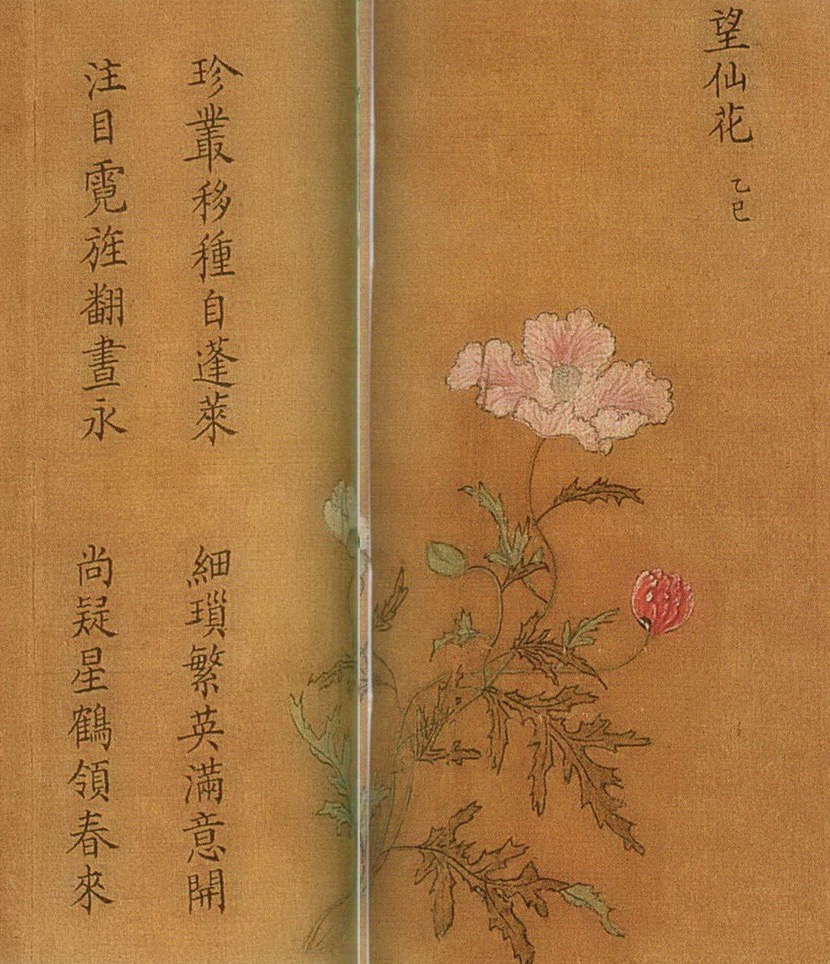 望仙花 乙巳
珍叢移種自蓬萊 細瑣繁英滿意開
注目霓旌翻晝永 尚疑星鶴領春來